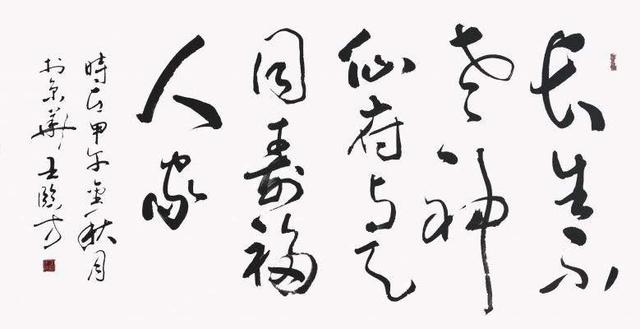 长生不
老神
仙府与天
同寿福
人家
時在甲午金秋月
於京華王